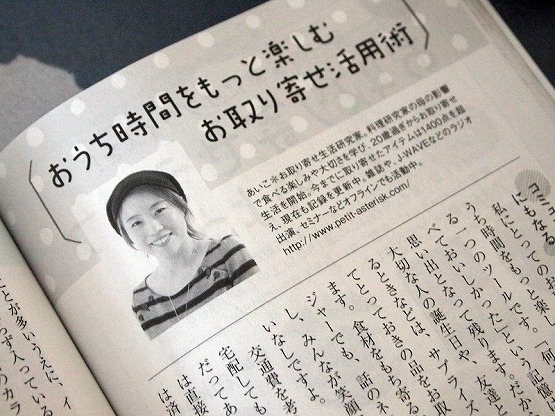 おうち時間をもっと楽しむ
お取り寄せ活用術
あいこ＊お取り寄せ生活研究家。料理研究家の母の影響
で食べる楽しみや大切さを学び、20歳過ぎからお取り寄せ
生活を開始。今までに取り寄せたアイテムは1400点を超
え、現在も記録を更新中。雑誌や、J-WAVEなどのラジオ
出演、セミナーなどオフラインでも活動中。
http://www.petit-asterisk.com/
コミ
にもなる
私にとってのお
うち時間をもっと楽
一つのツール
「おいしかった」という記憶
べて思い出となって残ります。だか
大切な人の誕生日や、友達
るときなどは、サプライズ
てとっておきの品をお取
食材をもち寄る
ます。
ジャーでも、話のネ
いなしですよ。
みんなが笑顔
交通費を考
宅配しても
だってあ
は直接
ことが多いうえに、イ
らず入っている